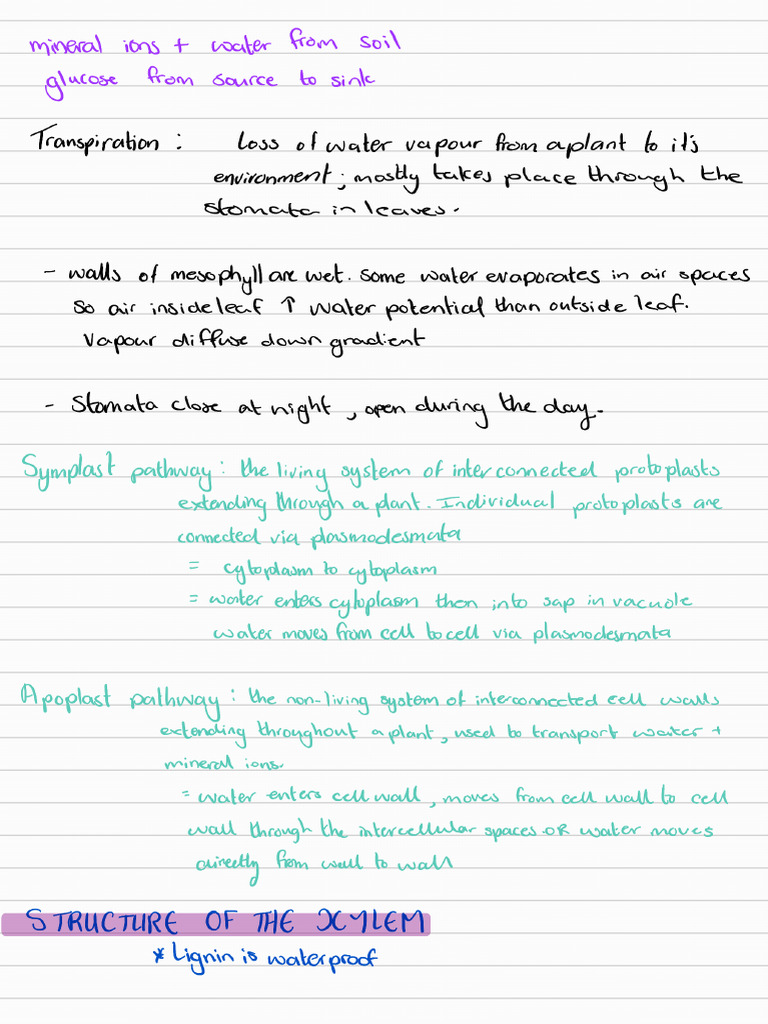 mineral ions + water from soil
glucose from source to sink
Transpiration : Loss of water vapour from a plant to it's
environment; mostly takes place through the
stomata in leaves.
- walls of mesophyll are wet. Some water evaporates in air spaces
so air inside leaf ↑ water potential than outside leaf.
Vapour diffuse down gradient
- Stomata close at night, open during the day.
Symplast pathway : the living system of interconnected protoplasts
extending through a plant. Individual protoplasts are
connected via plasmodesmata
= cytoplasm to cytoplasm
= water enters cytoplasm then into sap in vacuole
water moves from cell to cell via plasmodesmata
Apoplast pathway : the non-living system of interconnected cell walls
extending throughout a plant, used to transport water +
mineral ions.
= water enters cell wall, moves from cell wall to cell
wall through the intercellular spaces OR water moves
directly from wall to wall
STRUCTURE OF THE XYLEM
* Lignin is waterproof